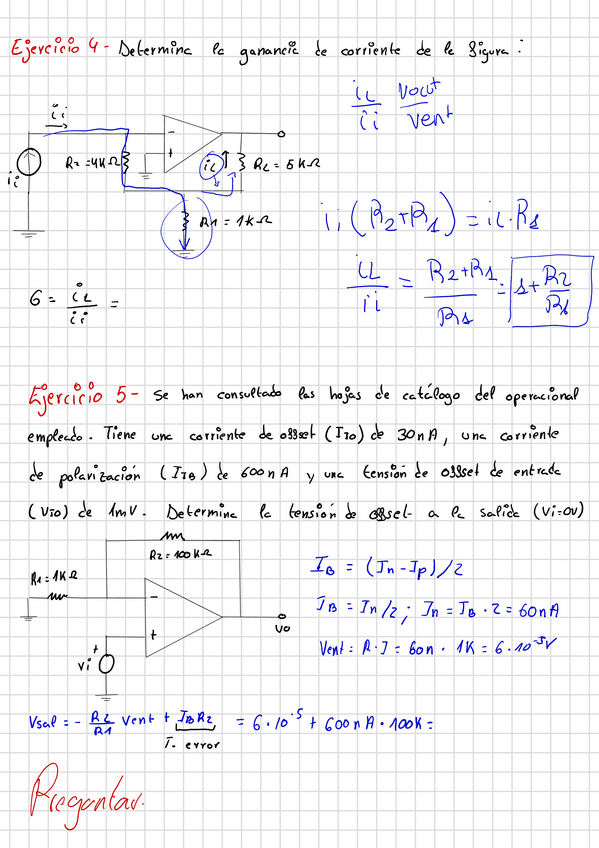 Ejercicio 4 - Determina la ganancia de corriente de la figura :
iL Vout
ii Vent
ii
R2 = 4KΩ
iL
RL = 5KΩ
ii
R1 = 1KΩ
ii (R2+R1) = iL·R1
iL/ii = R2+R1/R1 = 1 + R2/R1
G = iL/ii =
Ejercicio 5 - Se han consultado las hojas de catálogo del operacional
empleado. Tiene una corriente de offset (IIO) de 30nA, una corriente
de polarización (IIB) de 600nA y una tensión de offset de entrada
(VIO) de 1mV. Determina la tensión de offset a la salida (Vi=0V)
R2 = 100KΩ
R1 = 1KΩ
-
+
Vi
+
Vo
IB = (In - Ip)/2
IB = In/2 ; In = IB · 2 = 60nA
Vent = R·I = 60n · 1K = 6·10⁻⁵V
Vsal = - R2/R1 Vent + IB R2 = 6·10⁻⁵ + 600nA · 100K =
T. error
Preguntar.